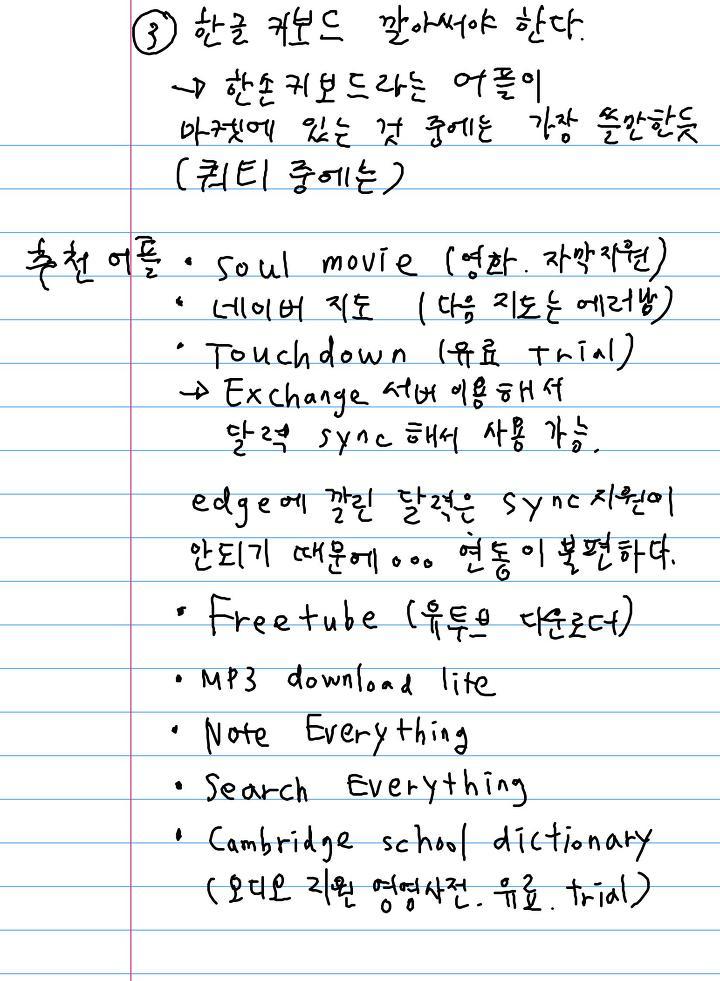 ③ 한글 키보드 깔아써야 한다.
→ 한손키보드라는 어플이
마켓에 있는 것 중에는 가장 쓸만한듯
(쿼티 중에는)
추천 어플 • soul movie (영화. 자막지원)
• 네이버 지도 (다음 지도는 에러남)
• Touchdown (유료 trial)
→ Exchange 서버 이용해서
달력 sync 해서 사용 가능.
edge에 깔린 달력은 sync지원이
안되기 때문에... 연동이 불편하다.
• Freetube (유투브 다운로더)
• MP3 download lite
• Note Everything
• Search Everything
• Cambridge school dictionary
(오디오 지원 영영사전. 유료. trial)